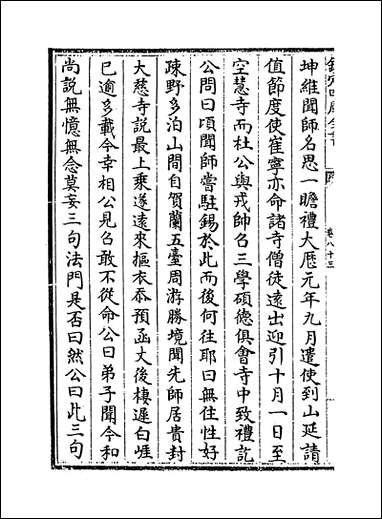 欽定四庫全書
卷八十三
坤維聞師名思一瞻禮大厯元年九月遣使到山延請
值節度使崔寧亦命諸寺僧徒遠出迎引十月一日至
空慧寺而杜公與戎帥名三學碩德俱會寺中致禮訖
公問曰頃聞師嘗駐錫於此而後何往耶曰無住性好
疎野多泊山間自賀蘭五臺周游勝境聞先師居貴封
大慈寺說最上乘遂遠來摳衣忝預函丈後棲遲白崕
已逾多載今幸相公見名敢不從命公曰弟子聞今和
尚說無憶無念莫妄三句法門是否曰然公曰此三句